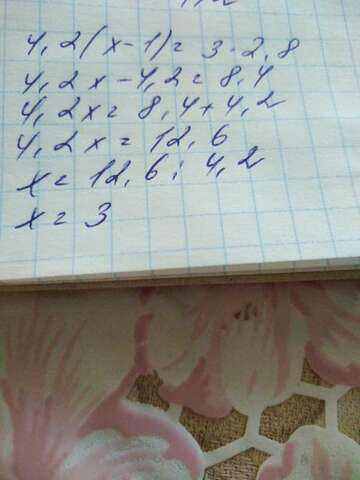 4,2(x-1)= 3·2,8
4,2x-4,2=8,4
4,2x=8,4+4,2
4,2x=12,6
x=12,6:4,2
x=3